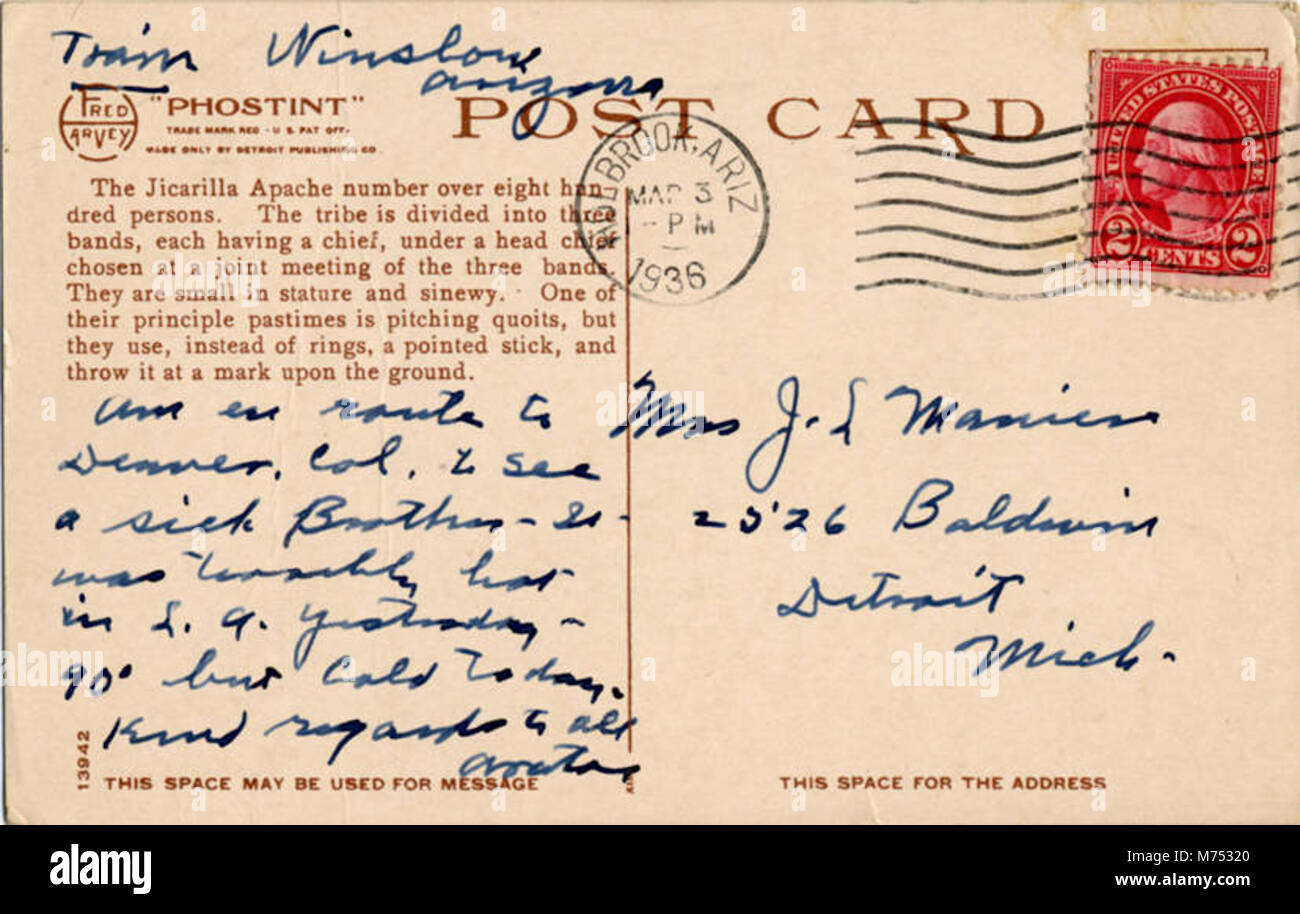 Train Winslow
Arizona
FRED
HARVEY
"PHOSTINT"
TRADE MARK REG - U S. PAT OFF.
MADE ONLY BY DETROIT PUBLISHING CO
POST CARD
HOLBROOK, ARIZ
MAR 3
1-PM
1936
UNITED STATES POSTAGE
2 CENTS 2
The Jicarilla Apache number over eight hun-
dred persons. The tribe is divided into three
bands, each having a chief, under a head chief
chosen at a joint meeting of the three bands.
They are small in stature and sinewy. One of
their principle pastimes is pitching quoits, but
they use, instead of rings, a pointed stick, and
throw it at a mark upon the ground.
Am en route to
Denver, Col. to see
a sick Brother - It
was terribly hot
in L. A. yesterday -
90° but cold today.
Kind regards to all
Mrs J. L Manier
2526 Baldwin
Detroit
Mich.
13942
THIS SPACE MAY BE USED FOR MESSAGE
THIS SPACE FOR THE ADDRESS
alamy
Image ID: M75320
www.alamy.com